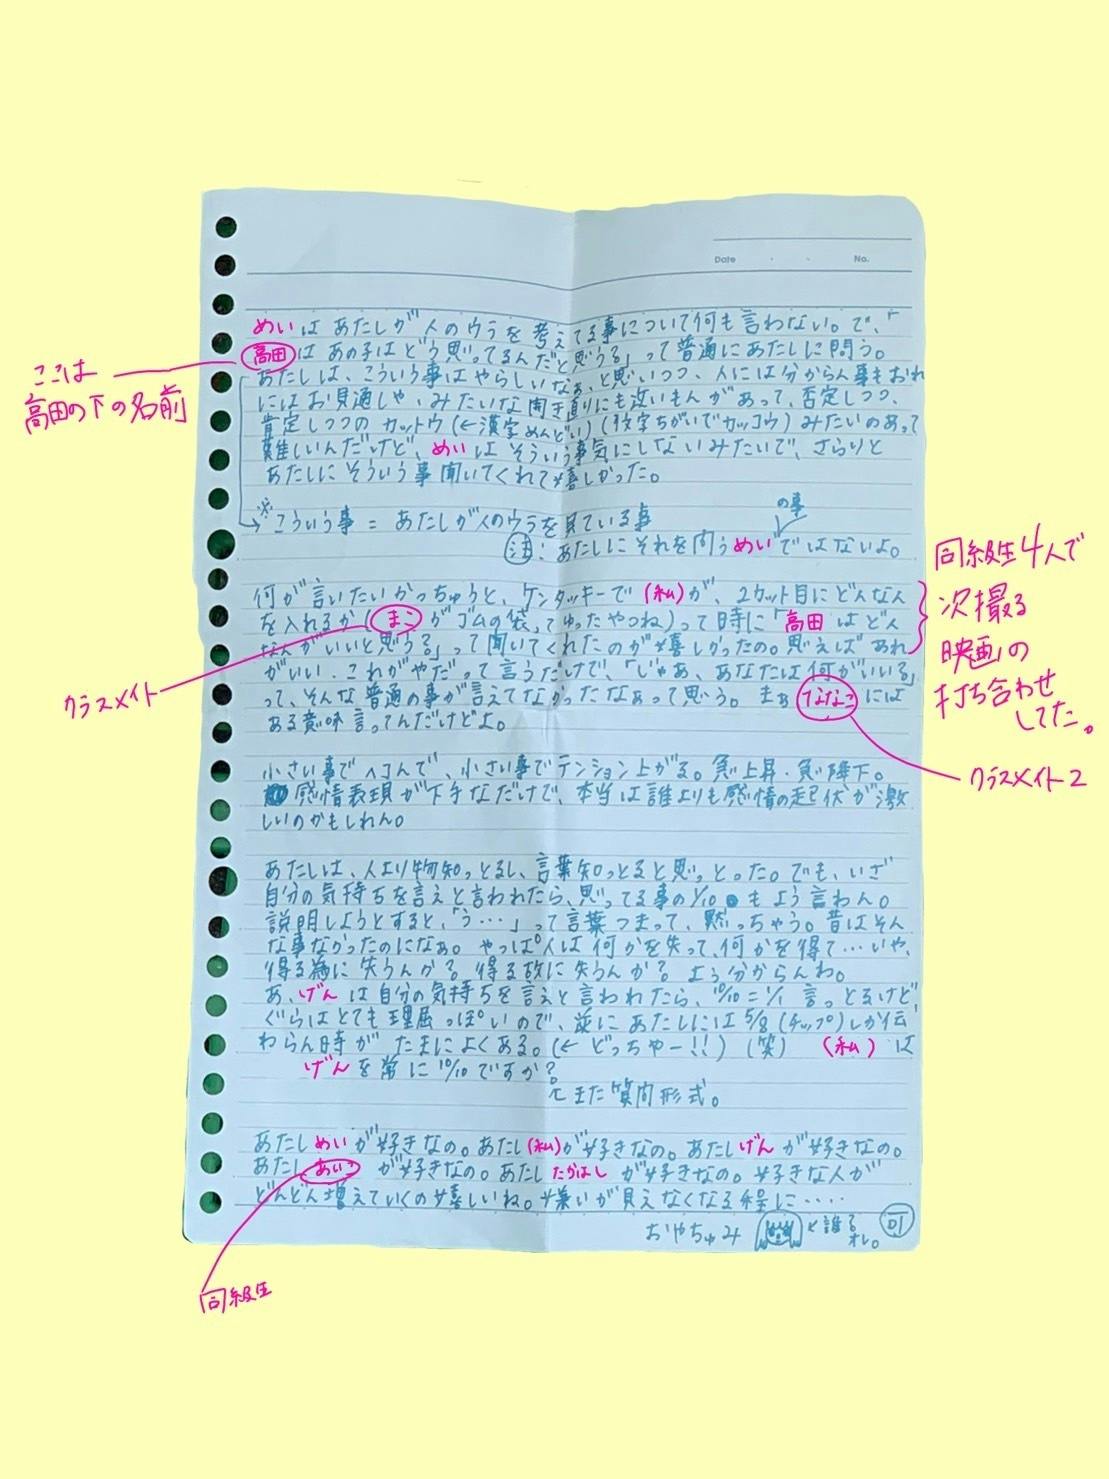 Date ・ ・ No.
めいはあたしが人のウラを考えてる事について何も言わない。で、「
高田はあの子はどう思ってるんだと思うる」って普通にあたしに問う。
あたしは、こういう事はやらしいなぁ、と思いつつ、人には分からん事もおれ
にはお見通しや、みたいな開き直りにも近いもんがあって、否定しつつ、
肯定しつつのカットウ(←漢字めんどい)(1文字ちがいでカッコウ)みたいのあって
難しいんだけど、めいはそういう事気にしないみたいで、さらりと
あたしにそういう事聞いてくれて嬉しかった。
※こういう事=あたしが人のウラを見ている事
の事
注:あたしにそれを問うめいではないよ。
何が言いたいかっちゅうと、ケンタッキーで(私)が、2カット目にどんなん
を入れるか(まこがゴムの袋ってゆったやつね)って時に「高田はどん
なんがいいと思うる」って聞いてくれたのが嬉しかったの。思えばあれ
がいい.これがやだって言うだけで、「じゃあ、あなたは何がいいる」
って、そんな普通の事が言えてなかったなぁって思う。まぁななこには
ある意味言ってんだけどよ。
小さい事でヘコんで、小さい事でテンション上がる。急上昇・急降下。
感情表現が下手なだけで、本当は誰よりも感情の起伏が激
しいのかもしれん。
あたしは、人より物知っとるし、言葉知っとると思っとった。でも、いざ
自分の気持ちを言えと言われたら、思ってる事の1/10もよう言わん。
説明しようとすると、「う…」って言葉つまって、黙っちゃう。昔はそん
な事なかったのになぁ。やっぱ人は何かを失って、何かを得て…いや、
得る為に失うんかる。得る故に失うんかる よう分からんわ。
あ、げんは自分の気持ちを言えと言われたら、10/10=1/1言っとるけど、
ぐらはとても理屈っぽいので、逆にあたしには5/8(チップ)しか伝
わらん時がたまによくある。(←どっちやー!!)(笑) (私)は
げんを常に10/10ですか?
またも質問形式。
あたしめいが好きなの。あたし(私)が好きなの。あたしげんが好きなの。
あたしあいこが好きなの。あたしたかはしが好きなの。好きな人が
どんどん増えていくの嬉しいね。嫌いが見えなくなる程に‥‥
おやちゅみ と誰る オレ。
ここは
高田の下の名前
クラスメイト
同級生4人で
次撮る
映画の
打ち合わせ
してた。
クラスメイト2
同級生